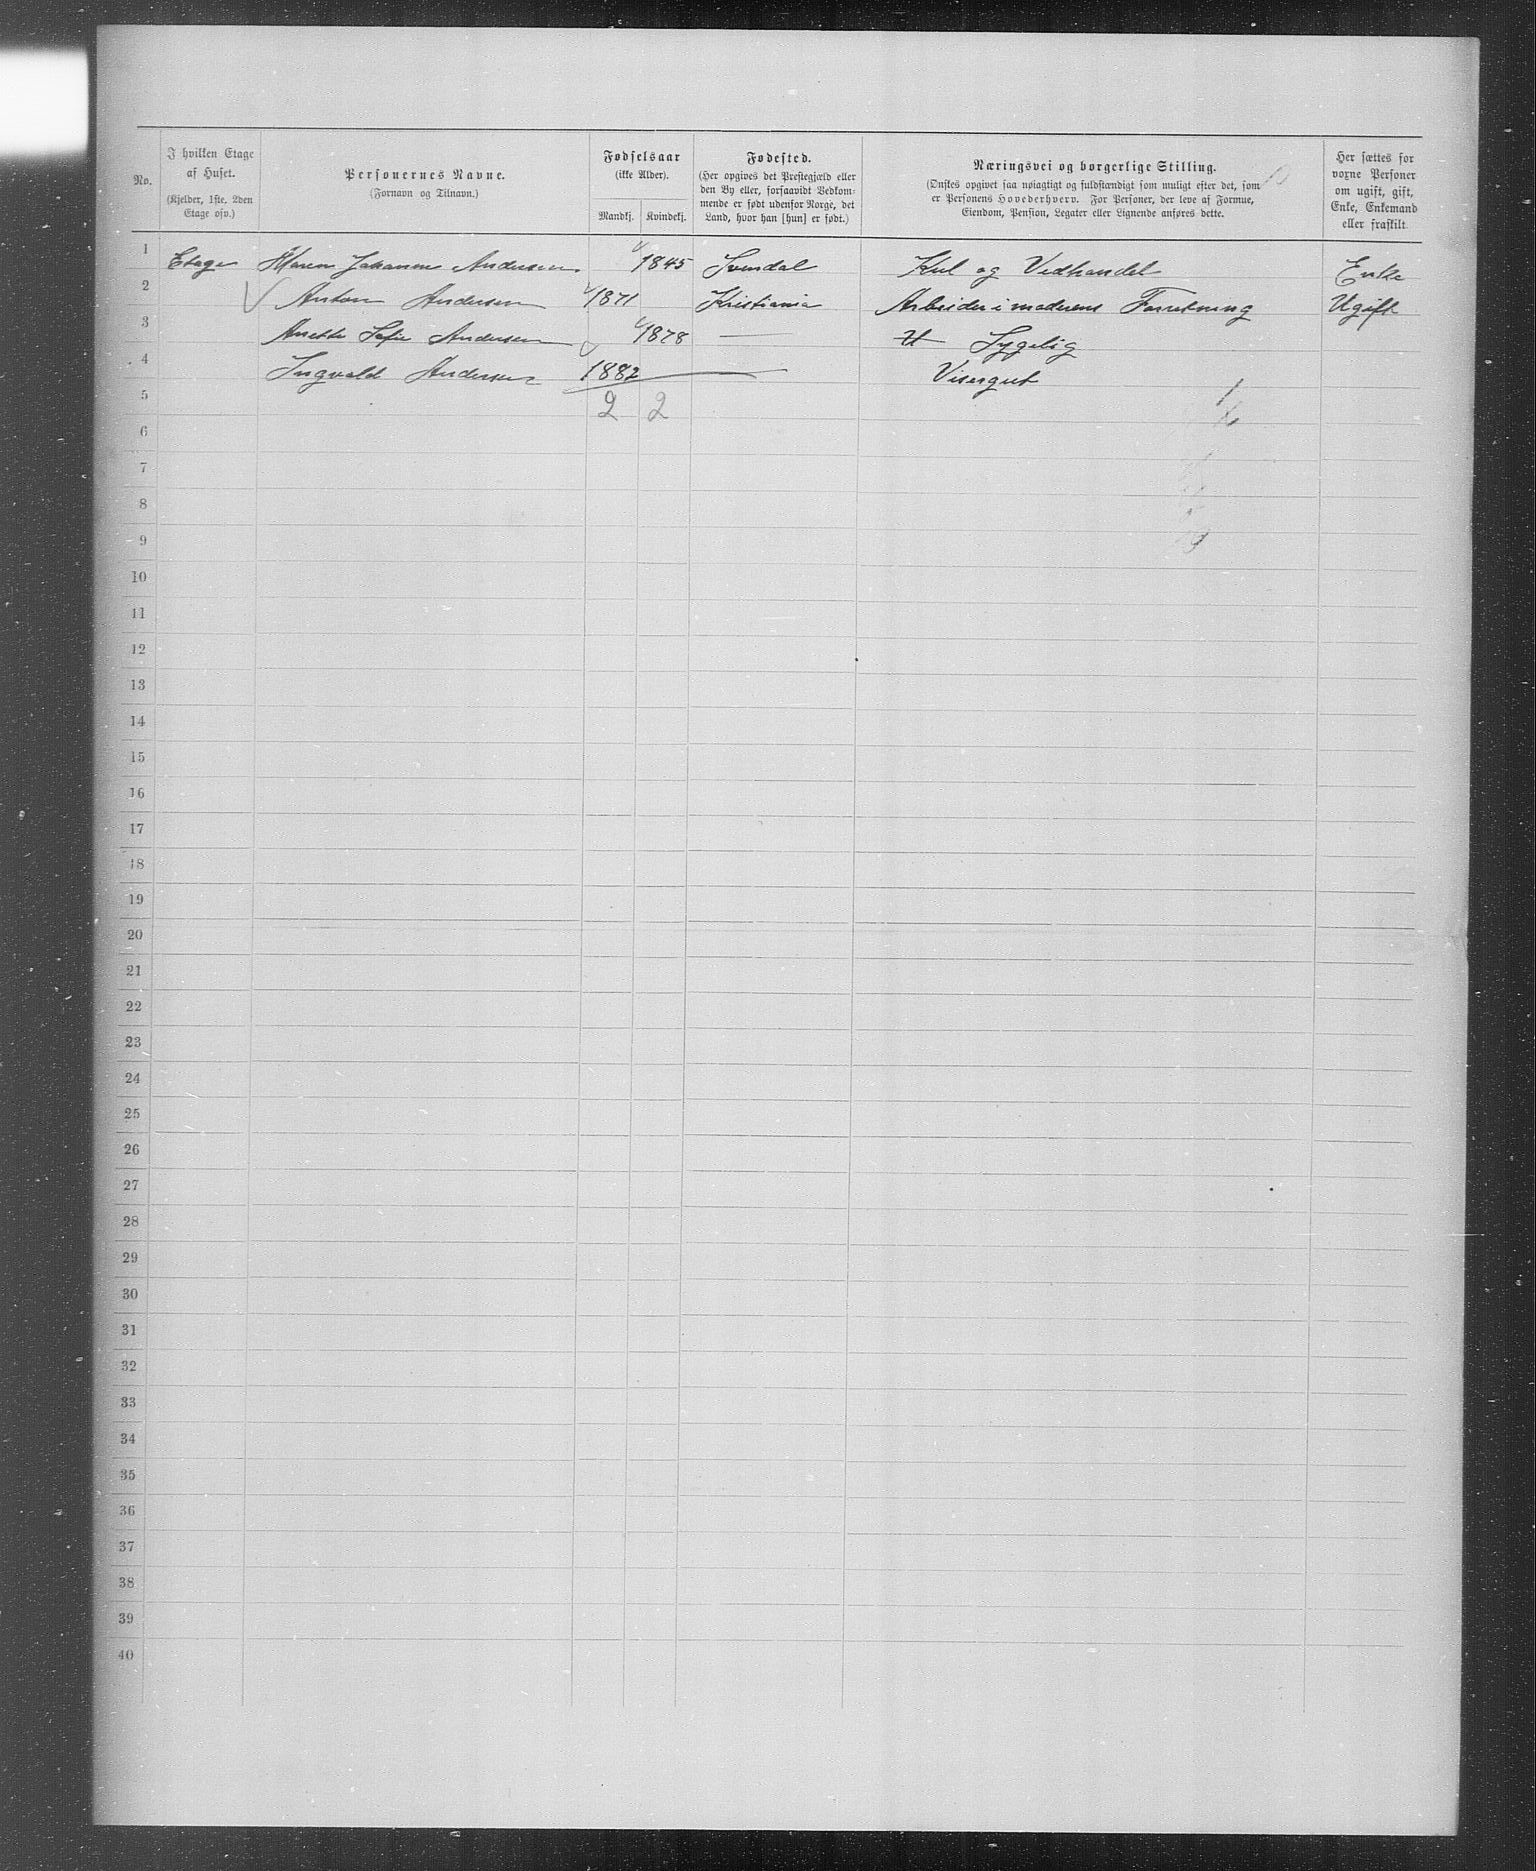 No.
I hvilken Etage af Huset.
(Kjelder, 1ste, 2den Etage osv.)
Personernes Navne.
(Fornavn og Tilnavn.)
Fødselsaar
(ikke Alder).
Mandkj. Kvindekj.
Fødested.
(Her opgives det Prestegjæld eller
den By eller, forsaavidt Vedkom-
mende er født udenfor Norge, det
Land, hvor han [hun] er født.)
Næringsvei og borgerlige Stilling.
(Ønskes opgivet saa nøiagtigt og fuldstændigt som muligt efter det, som
er Personens Hovederhverv. For Personer, der leve af Formue,
Eiendom, Pension, Legater eller Lignende anføres dette.
Her sættes for
voxne Personer
om ugift, gift,
Enke, Enkemand
eller fraskilt
1 Etage Maren Johanne Andersen 1845 Kul og Vedhandel Enke
2 Anton Andersen 1871 Kristiania Arbeider i moderens Forretning Ugift
3 Anette Sofie Andersen 1878 — Sygelig
4 Ingvald Andersen 1882 — Visergut
5 2 2
6
7
8
9
10
11
12
13
14
15
16
17
18
19
20
21
22
23
24
25
26
27
28
29
30
31
32
33
34
35
36
37
38
39
40